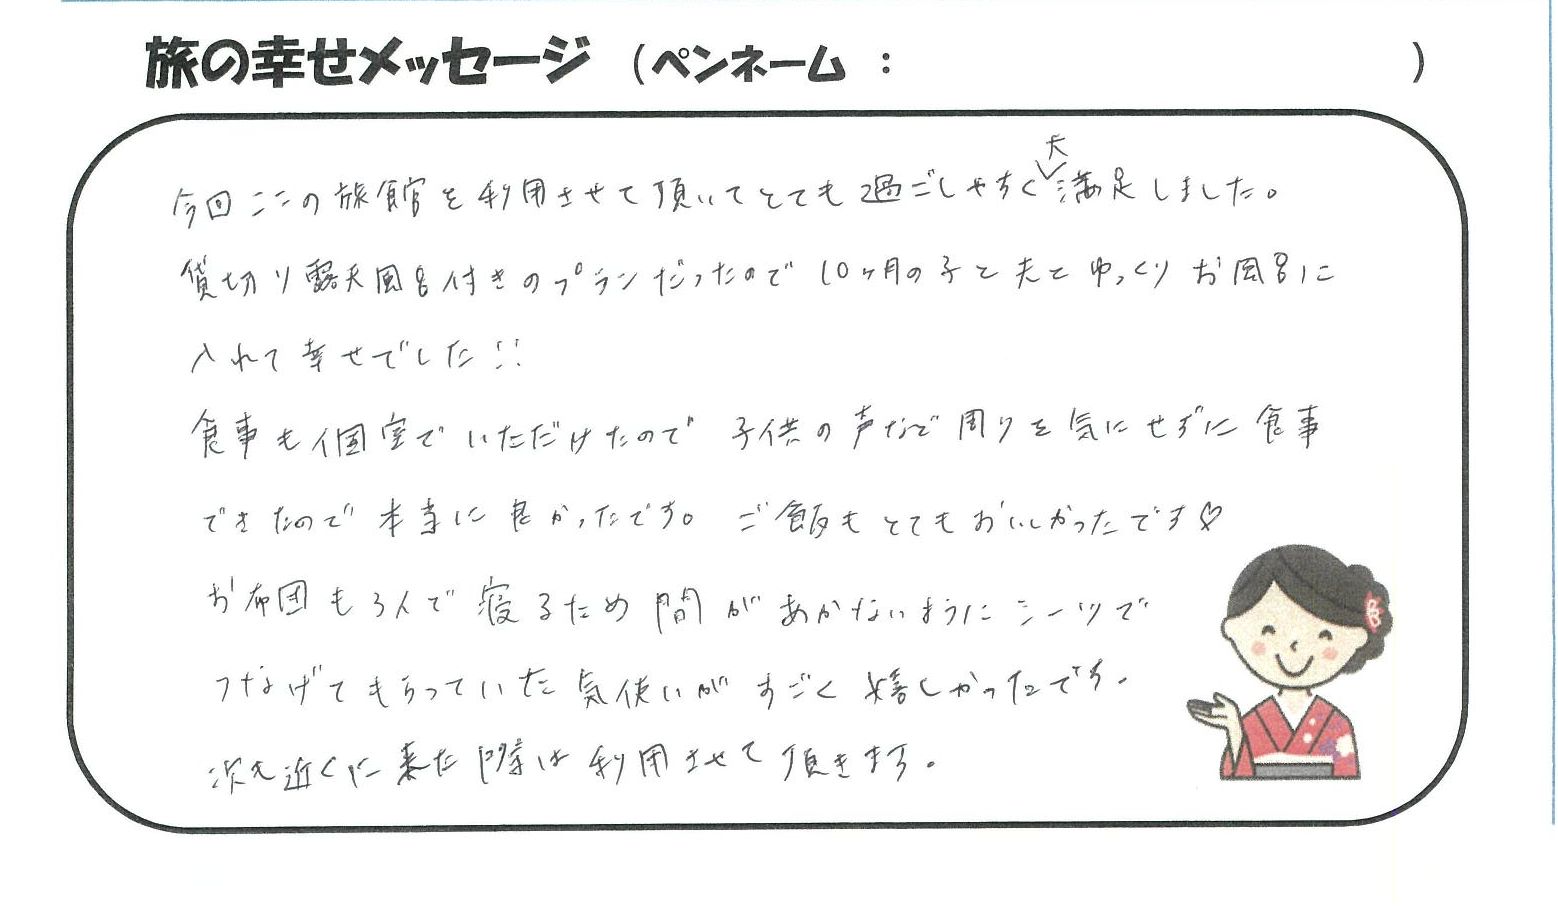 旅の幸せメッセージ (ペンネーム : )
今回ここの旅館を利用させて頂いてとても過ごしやすく大満足しました。
貸切り露天風呂付きのプランだったので10ヶ月の子と夫とゆっくりお風呂に
入れて幸せでした!!
食事も個室でいただけたので子供の声など周りを気にせずに食事
できたので本当に良かったです。ご飯もとてもおいしかったです♡
お布団も3人で寝るため間があかないようにシーツで
つなげてもらっていた気使いがすごく嬉しかったです。
次も近くに来た際は利用させて頂きます。